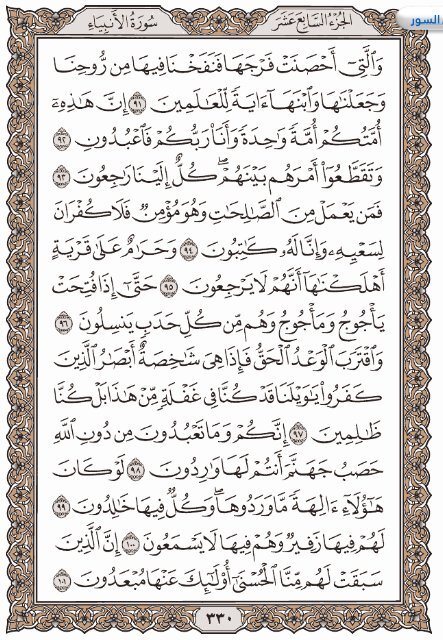 السور
الجزء السابع عشر
سورة الأنبياء
وَٱلَّتِىٓ أَحْصَنَتْ فَرْجَهَا فَنَفَخْنَا فِيهَا مِن رُّوحِنَا
وَجَعَلْنَٰهَا وَٱبْنَهَآ ءَايَةً لِّلْعَٰلَمِينَ ٩١ إِنَّ هَٰذِهِۦٓ
أُمَّتُكُمْ أُمَّةً وَٰحِدَةً وَأَنَا۠ رَبُّكُمْ فَٱعْبُدُونِ ٩٢
وَتَقَطَّعُوٓا۟ أَمْرَهُم بَيْنَهُمْ ۖ كُلٌّ إِلَيْنَا رَٰجِعُونَ ٩٣
فَمَن يَعْمَلْ مِنَ ٱلصَّٰلِحَٰتِ وَهُوَ مُؤْمِنٌ فَلَا كُفْرَانَ
لِسَعْيِهِۦ وَإِنَّا لَهُۥ كَٰتِبُونَ ٩٤ وَحَرَٰمٌ عَلَىٰ قَرْيَةٍ
أَهْلَكْنَٰهَآ أَنَّهُمْ لَا يَرْجِعُونَ ٩٥ حَتَّىٰٓ إِذَا فُتِحَتْ
يَأْجُوجُ وَمَأْجُوجُ وَهُم مِّن كُلِّ حَدَبٍ يَنسِلُونَ ٩٦
وَٱقْتَرَبَ ٱلْوَعْدُ ٱلْحَقُّ فَإِذَا هِىَ شَٰخِصَةٌ أَبْصَٰرُ ٱلَّذِينَ
كَفَرُوا۟ يَٰوَيْلَنَا قَدْ كُنَّا فِى غَفْلَةٍ مِّنْ هَٰذَا بَلْ كُنَّا
ظَٰلِمِينَ ٩٧ إِنَّكُمْ وَمَا تَعْبُدُونَ مِن دُونِ ٱللَّهِ
حَصَبُ جَهَنَّمَ أَنتُمْ لَهَا وَٰرِدُونَ ٩٨ لَوْ كَانَ
هَٰٓؤُلَآءِ ءَالِهَةً مَّا وَرَدُوهَا ۖ وَكُلٌّ فِيهَا خَٰلِدُونَ ٩٩
لَهُمْ فِيهَا زَفِيرٌ وَهُمْ فِيهَا لَا يَسْمَعُونَ ١٠٠ إِنَّ ٱلَّذِينَ
سَبَقَتْ لَهُم مِّنَّا ٱلْحُسْنَىٰٓ أُو۟لَٰٓئِكَ عَنْهَا مُبْعَدُونَ ١٠١
٣٣٠